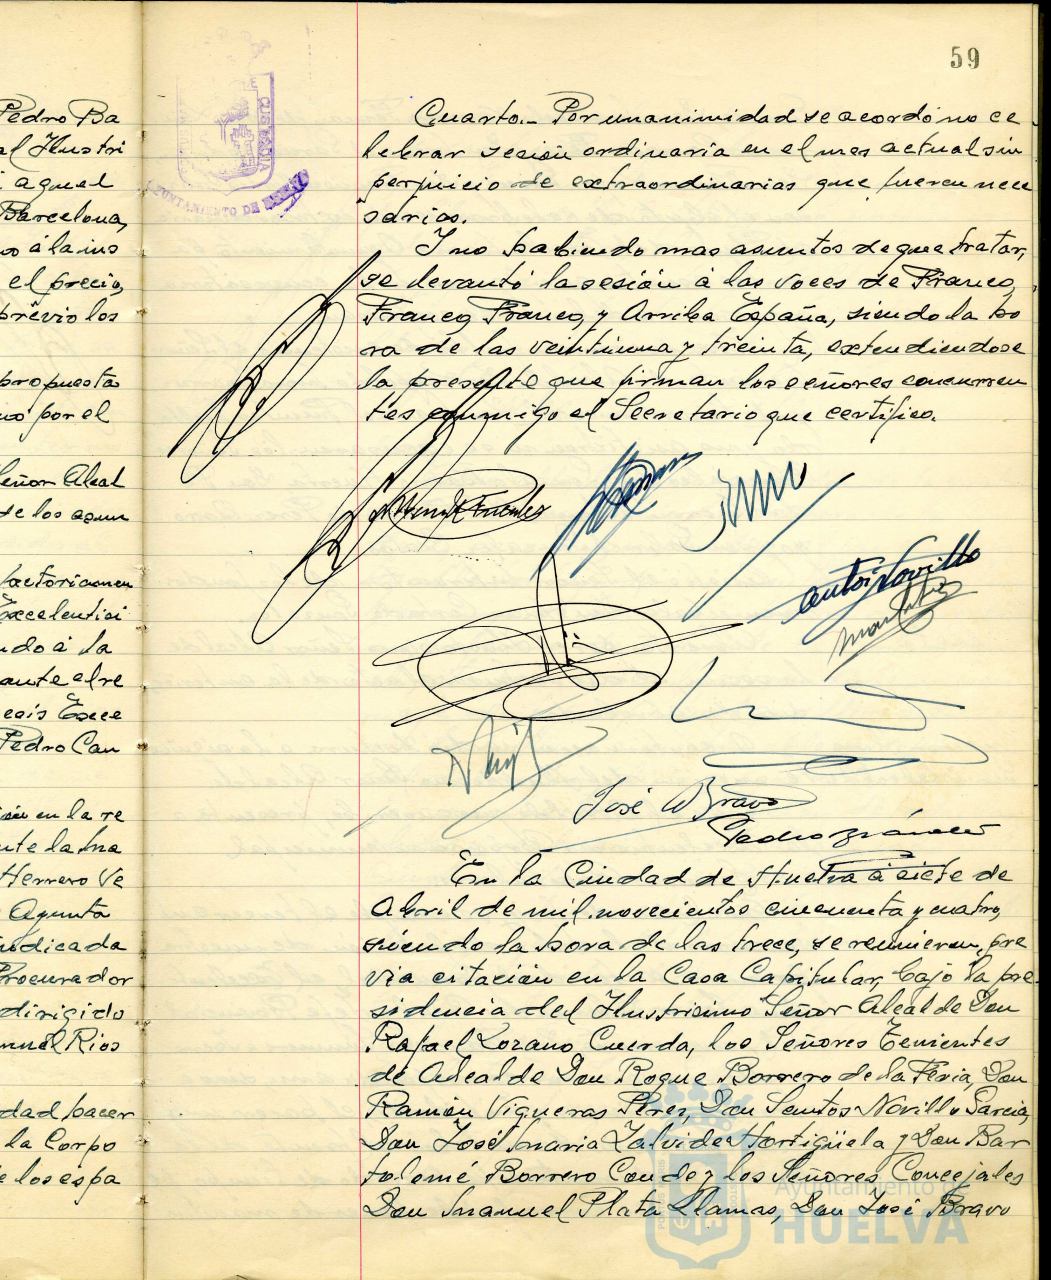 59
Pedro Ba
al Ilustri
aquel
Barcelona,
o á la ins
el precio,
prévio los
propuesta
por el
Señor Alcal
de los asun
factoriamen
Excelentisi
ndo á la
ante el re
Exce
Pedro Can
en la re
nte la Ina
Herrero Ve
Ayunta
indicada
Procurador
dirigido
nuel Rios
dad hacer
la Corpo
e los espa
CUSTODIA
AYUNTAMIENTO DE
Cuarto.- Por unanimidad se acordó no ce
lebrar sesión ordinaria en el mes actual sin
perjuicio de extraordinarias que fueren nece
sarias.
Y no habiendo mas asuntos de que tratar,
se levantó la sesión á las voces de Franco,
Franco, Franco, y Arriba España, siendo la ho
ra de las veintiuna y treinta, extendiendose
la presente que firman los señores concurren
tes conmigo el Secretario que certifico.
Antonio Novillo
José W Bravo
En la Ciudad de Huelva á siete de
Abril de mil novecientos cincuenta y cuatro,
siendo la hora de las trece, se reunieron, pre
via citación en la Casa Capitular, bajo la pre
sidencia del Ilustrisimo Señor Alcalde Don
Rafael Lozano Cuerda, los Señores Tenientes
de Alcalde Don Roque Borrero de la Feria, Don
Ramón Vigueras Pérez, Don Santos Novillo Garcia,
Don José Maria Zalvide Hortigüela y Don Bar
tolomé Borrero Conde y los Señores Concejales
Don Manuel Plata Llamas, Don José Bravo
Ayuntamiento de
HUELVA